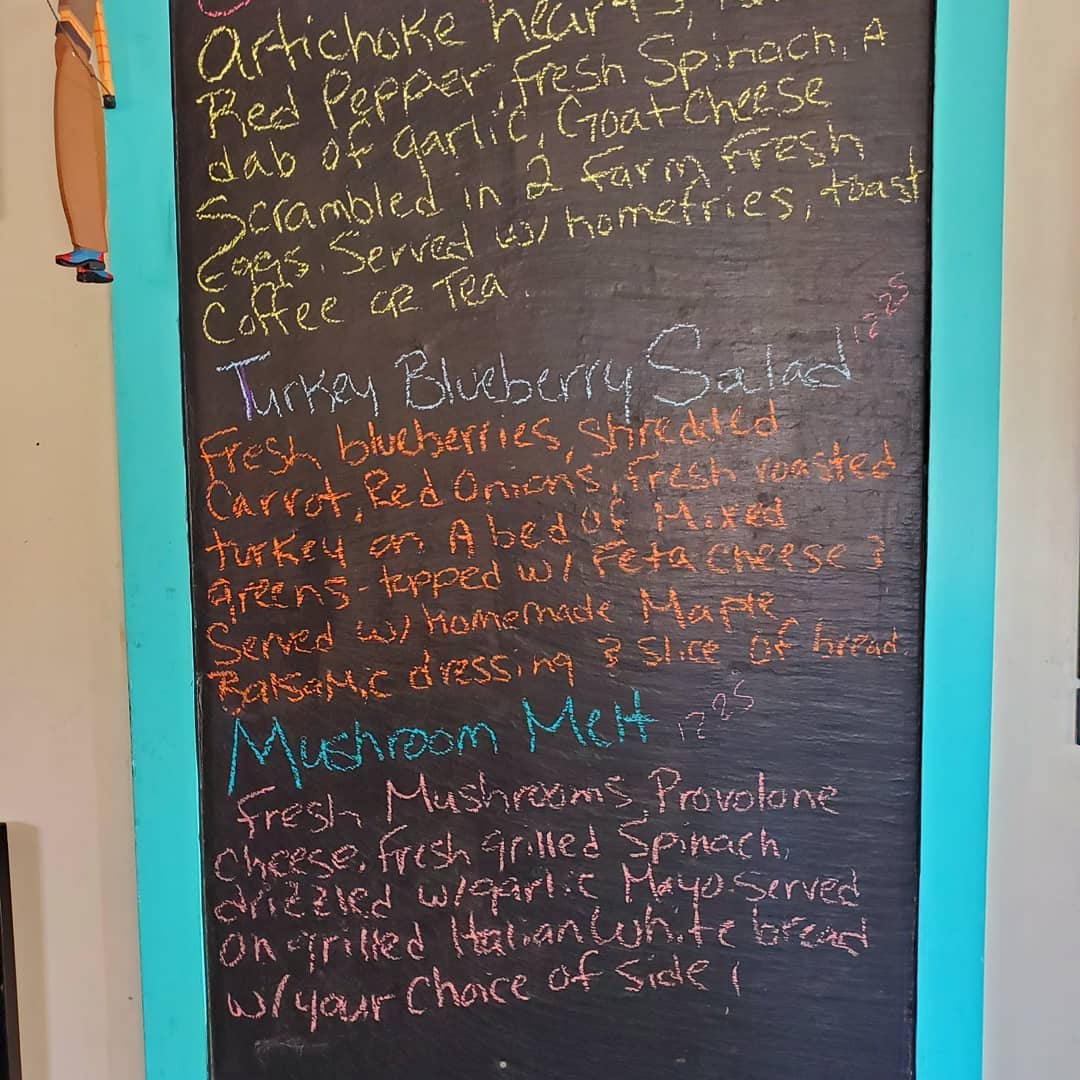 Artichoke hearts,
Red Pepper, Fresh Spinach, A
dab of garlic, Goat Cheese
Scrambled in 2 farm Fresh
Eggs. Served w/ homefries, toast
Coffee or Tea
Turkey Blueberry Salad 12.25
Fresh blueberries, shredded
Carrot, Red Onions, Fresh roasted
turkey on A bed of Mixed
greens - topped w/ Feta cheese &
Served w/ homemade Maple
Balsamic dressing & slice of bread.
Mushroom Melt 12.25
Fresh Mushrooms, Provolone
cheese, fresh grilled Spinach,
drizzled w/garlic Mayo Served
on grilled Italian White bread
w/your Choice of side!